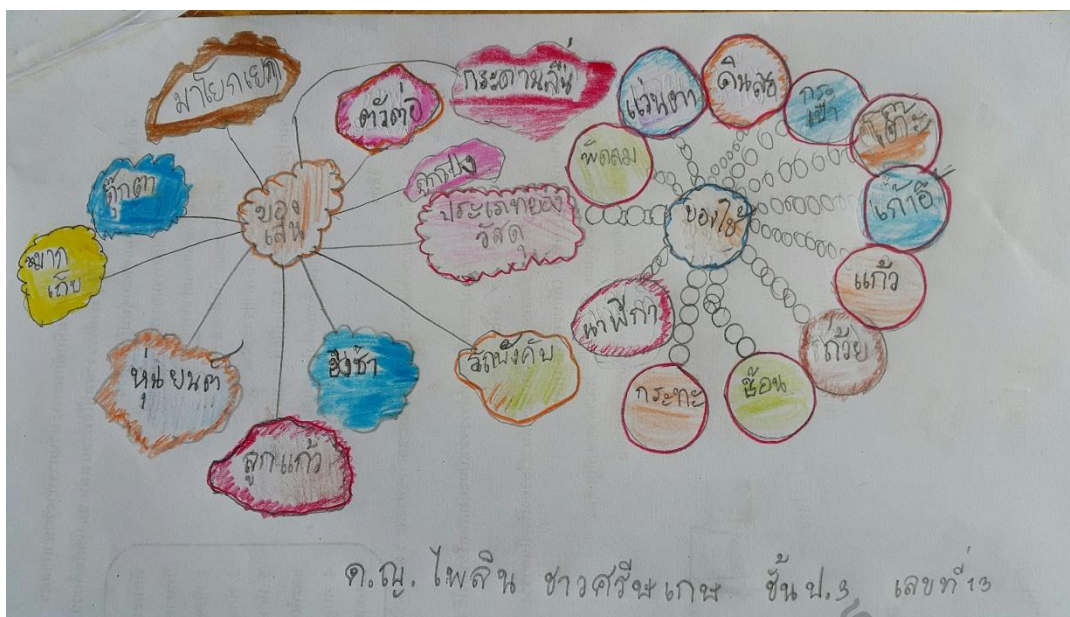 มาโยกเยก
ตัวต่อ
กระดานลื่น
ตุ๊กตา
ของ
เล่น
ลูกโป่ง
ประเภทของ
วัสดุ
หมาก
เก็บ
หุ่นยนต์
ชิงช้า
รถบังคับ
ลูกแก้ว
แว่นตา
ดินสอ
กระ
เป๋า
โต๊ะ
พัดลม
ของใช้
เก้าอี้
แก้ว
นาฬิกา
ถ้วย
กระทะ
ช้อน
ด.ญ. ไพลิน ชาวศรีษเกษ ชั้น ป.3 เลขที่ 13